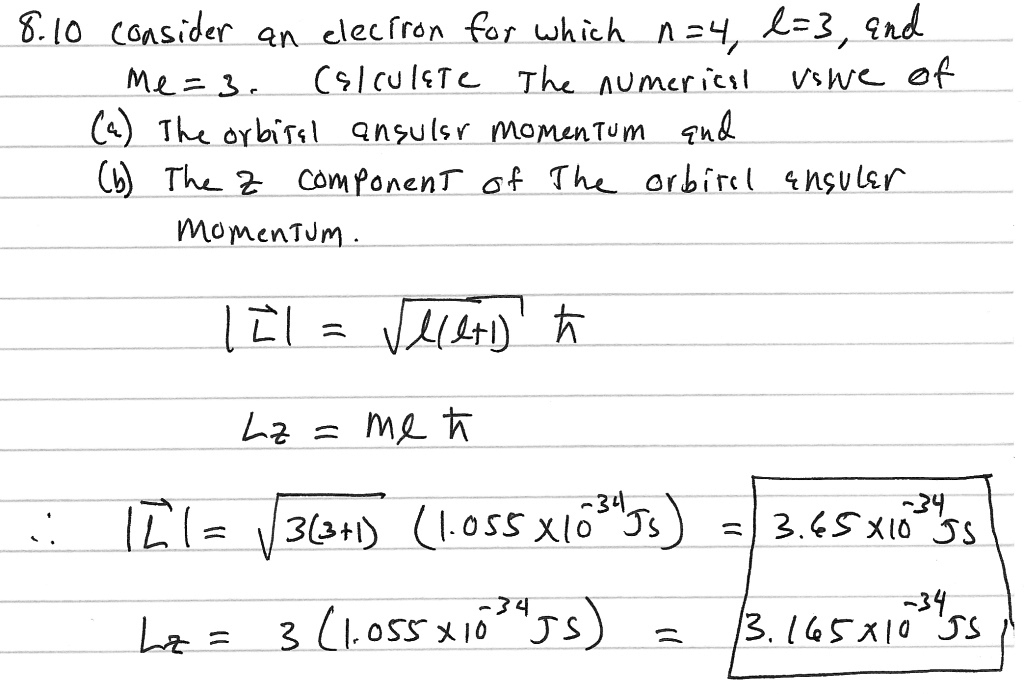 8.10 Consider an electron for which n=4, l=3, and
me=3. Calculate The numerical value of
(a) The orbital angular momentum and
(b) The z component of The orbital angular
momentum.
|L⃗| = √l(l+1) ħ
Lz = ml ħ
∴ |L⃗| = √3(3+1) (1.055 x10⁻³⁴ Js) = 3.65 x10⁻³⁴ Js
Lz = 3 (1.055 x10⁻³⁴ Js) = 3.165 x10⁻³⁴ Js